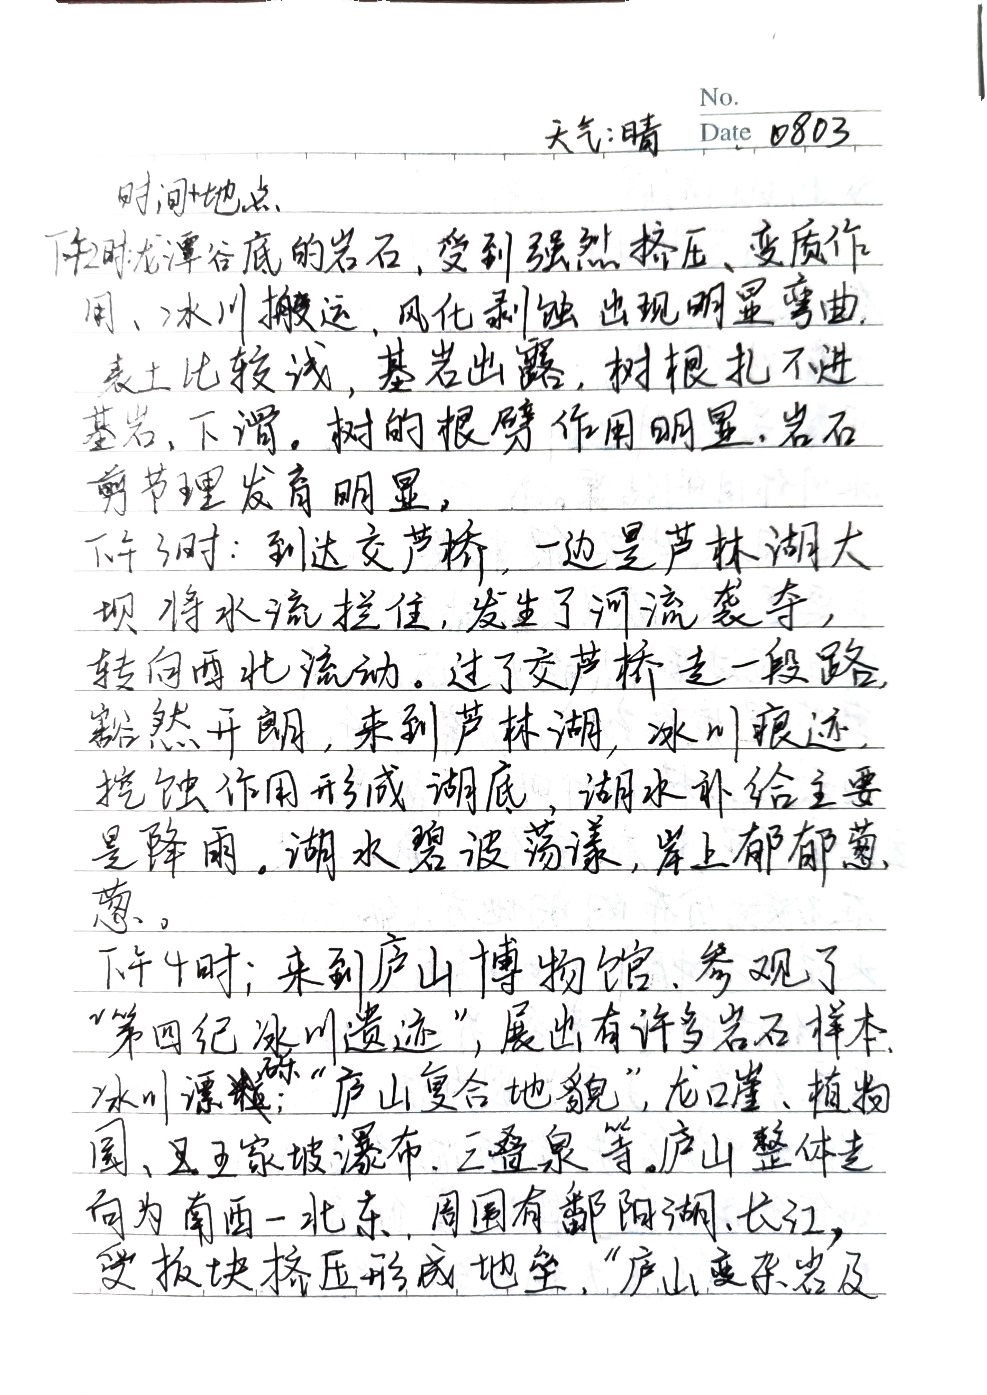 No.
天气:晴 Date 0803
时间+地点
下午2时:龙潭谷底的岩石、受到强烈挤压、变质作
用、冰川搬运、风化剥蚀出现明显弯曲.
表土比较浅,基岩出露,树根扎不进
基岩、下滑。树的根劈作用明显.岩石
剪节理发育明显。
下午3时:到达交芦桥,一边是芦林湖大
坝将水流拦住,发生了河流袭夺,
转向西北流动。过了交芦桥走一段路,
豁然开朗,来到芦林湖,冰川痕迹,
挖蚀作用形成湖底,湖水补给主要
是降雨。湖水碧波荡漾,岸上郁郁葱
葱。
下午4时;来到庐山博物馆.参观了
“第四纪冰川遗迹”,展出有许多岩石样本、
冰川漂砾;“庐山复合地貌”,龙口崖、植物
园、王家坡瀑布.三叠泉等。庐山整体走
向为南西—北东,周围有鄱阳湖、长江,
受板块挤压形成地垒,“庐山变杂岩及